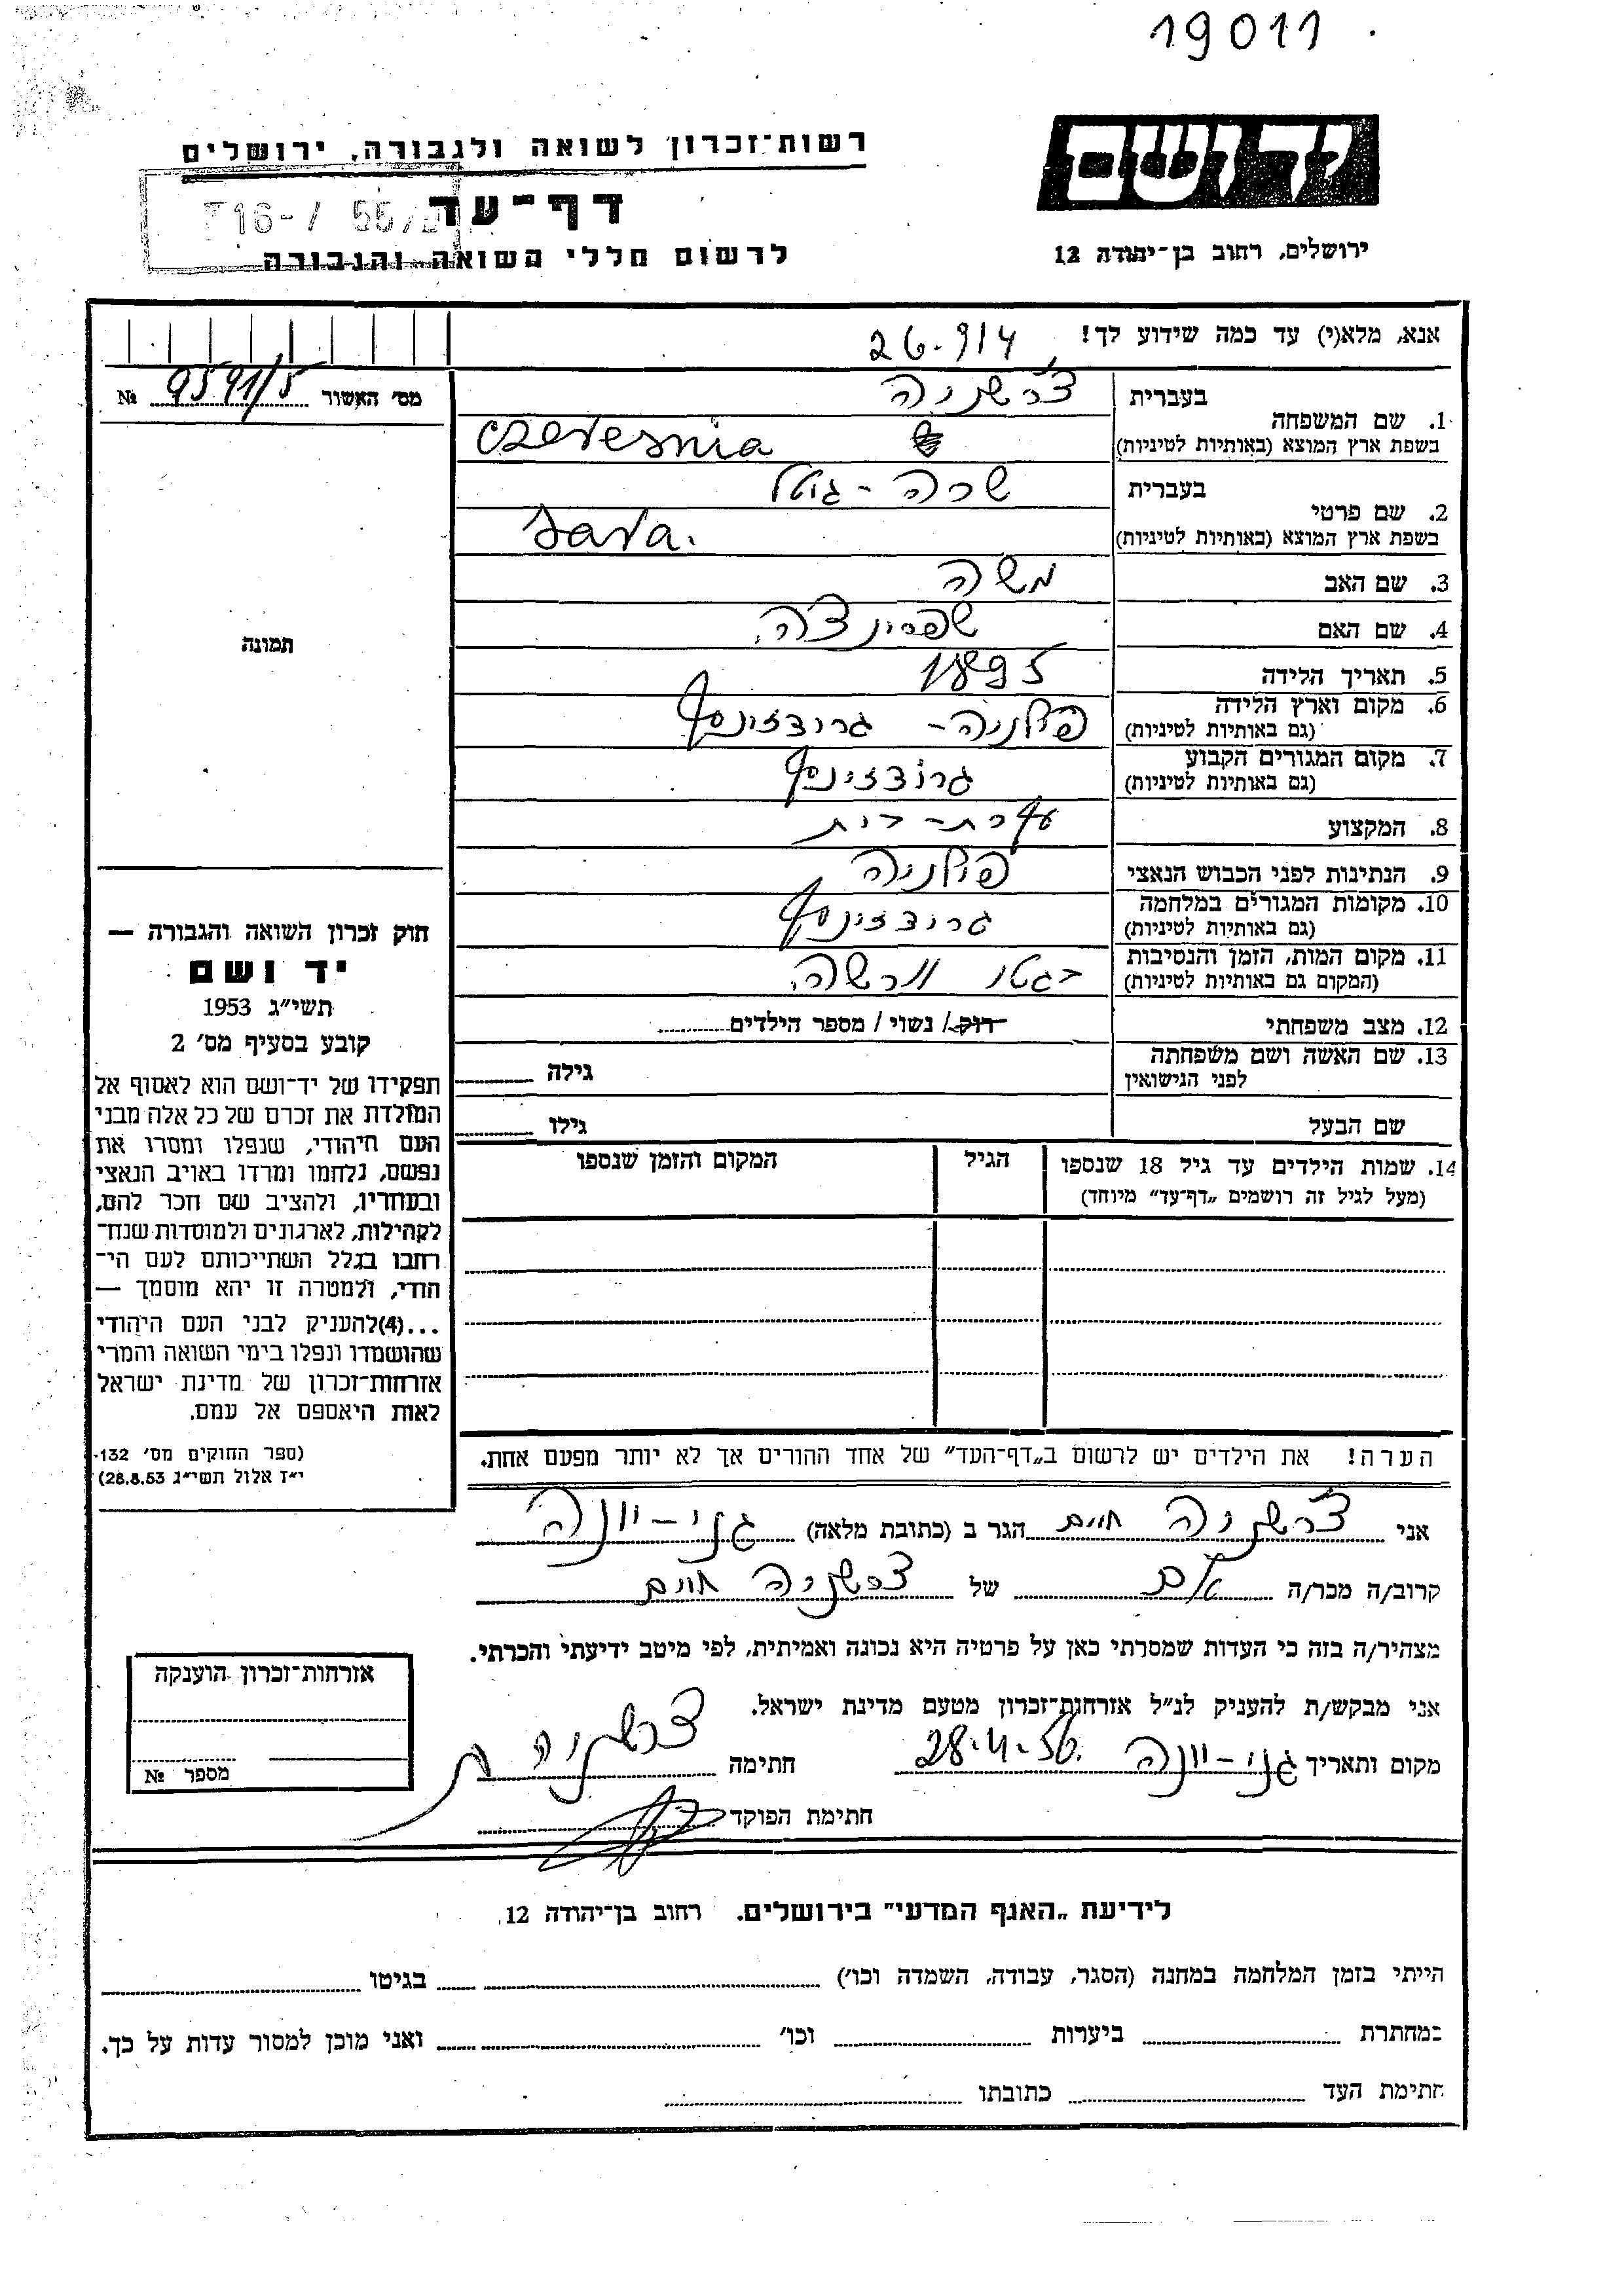 19011
יד ושם
רשות־זכרון לשואה ולגבורה, ירושלים
דף־עד
לרשום חללי השואה והגבורה
ירושלים, רחוב בן־יהודה 12
אנא, מלא(י) עד כמה שידוע לך! 26.914
מס׳ האשור 9591/5 №
1. שם המשפחה
בעברית צ׳רשניה
בשפת ארץ המוצא (באותיות לטיניות) Czeresnia
2. שם פרטי
בעברית שרה-גיטל
בשפת ארץ המוצא (באותיות לטיניות) Sara.
3. שם האב משה
4. שם האם שפרינצה.
תמונה
5. תאריך הלידה 1895
6. מקום וארץ הלידה פולניה-
(גם באותיות לטיניות)
7. מקום המגורים הקבוע
(גם באותיות לטיניות)
8. המקצוע עקרת-בית
9. הנתינות לפני הכבוש הנאצי פולניה
10. מקומות המגורים במלחמה
(גם באותיות לטיניות)
11. מקום המות, הזמן והנסיבות בגטו וורשה.
(המקום גם באותיות לטיניות)
12. מצב משפחתי רוק/ נשוי / מספר הילדים
13. שם האשה ושם משפחתה
לפני הנישואין גילה
שם הבעל גילו
14. שמות הילדים עד גיל 18 שנספו הגיל המקום והזמן שנספו
(מעל לגיל זה רושמים „דף־עד״ מיוחד)
חוק זכרון השואה והגבורה —
יד ושם
תשי״ג 1953
קובע בסעיף מס׳ 2
תפקידו של יד־ושם הוא לאסוף אל
המולדת את זכרם של כל אלה מבני
העם היהודי, שנפלו ומסרו את
נפשם, נלחמו ומרדו באויב הנאצי
ובעוזריו, ולהציב שם וזכר להם,
לקהילות, לארגונים ולמוסדות שנח־
רבו בגלל השתייכותם לעם הי־
הודי, ולמטרה זו יהא מוסמך —
...(4)להעניק לבני העם היהודי
שהושמדו ונפלו בימי השואה והמרי
אזרחות־זכרון של מדינת ישראל
לאות היאספם אל עמם.
(ספר החוקים מס׳ 132,
י״ז אלול תשי״ג 28.8.53)
הערה! את הילדים יש לרשום ב„דף־העד״ של אחד ההורים אך לא יותר מפעם אחת.
אני צ׳רשניה חיים הגר ב (כתובת מלאה) גני-יונה
קרוב/ה מכר/ה אם של צרשניה חיים
מצהיר/ה בזה כי העדות שמסרתי כאן על פרטיה היא נכונה ואמיתית, לפי מיטב ידיעתי והכרתי.
אני מבקש/ת להעניק לנ״ל אזרחות־זכרון מטעם מדינת ישראל.
מקום ותאריך גני-יונה 28.4.56. חתימה צרשניה ח
חתימת הפוקד
אזרחות־זכרון הוענקה
מספר №
לידיעת „האגף המדעי״ בירושלים. רחוב בן־יהודה 12.
הייתי בזמן המלחמה במחנה (הסגר, עבודה, השמדה וכו׳) בגיטו
במחתרת ביערות וכו׳ ואני מוכן למסור עדות על כך.
חתימת העד כתובתו